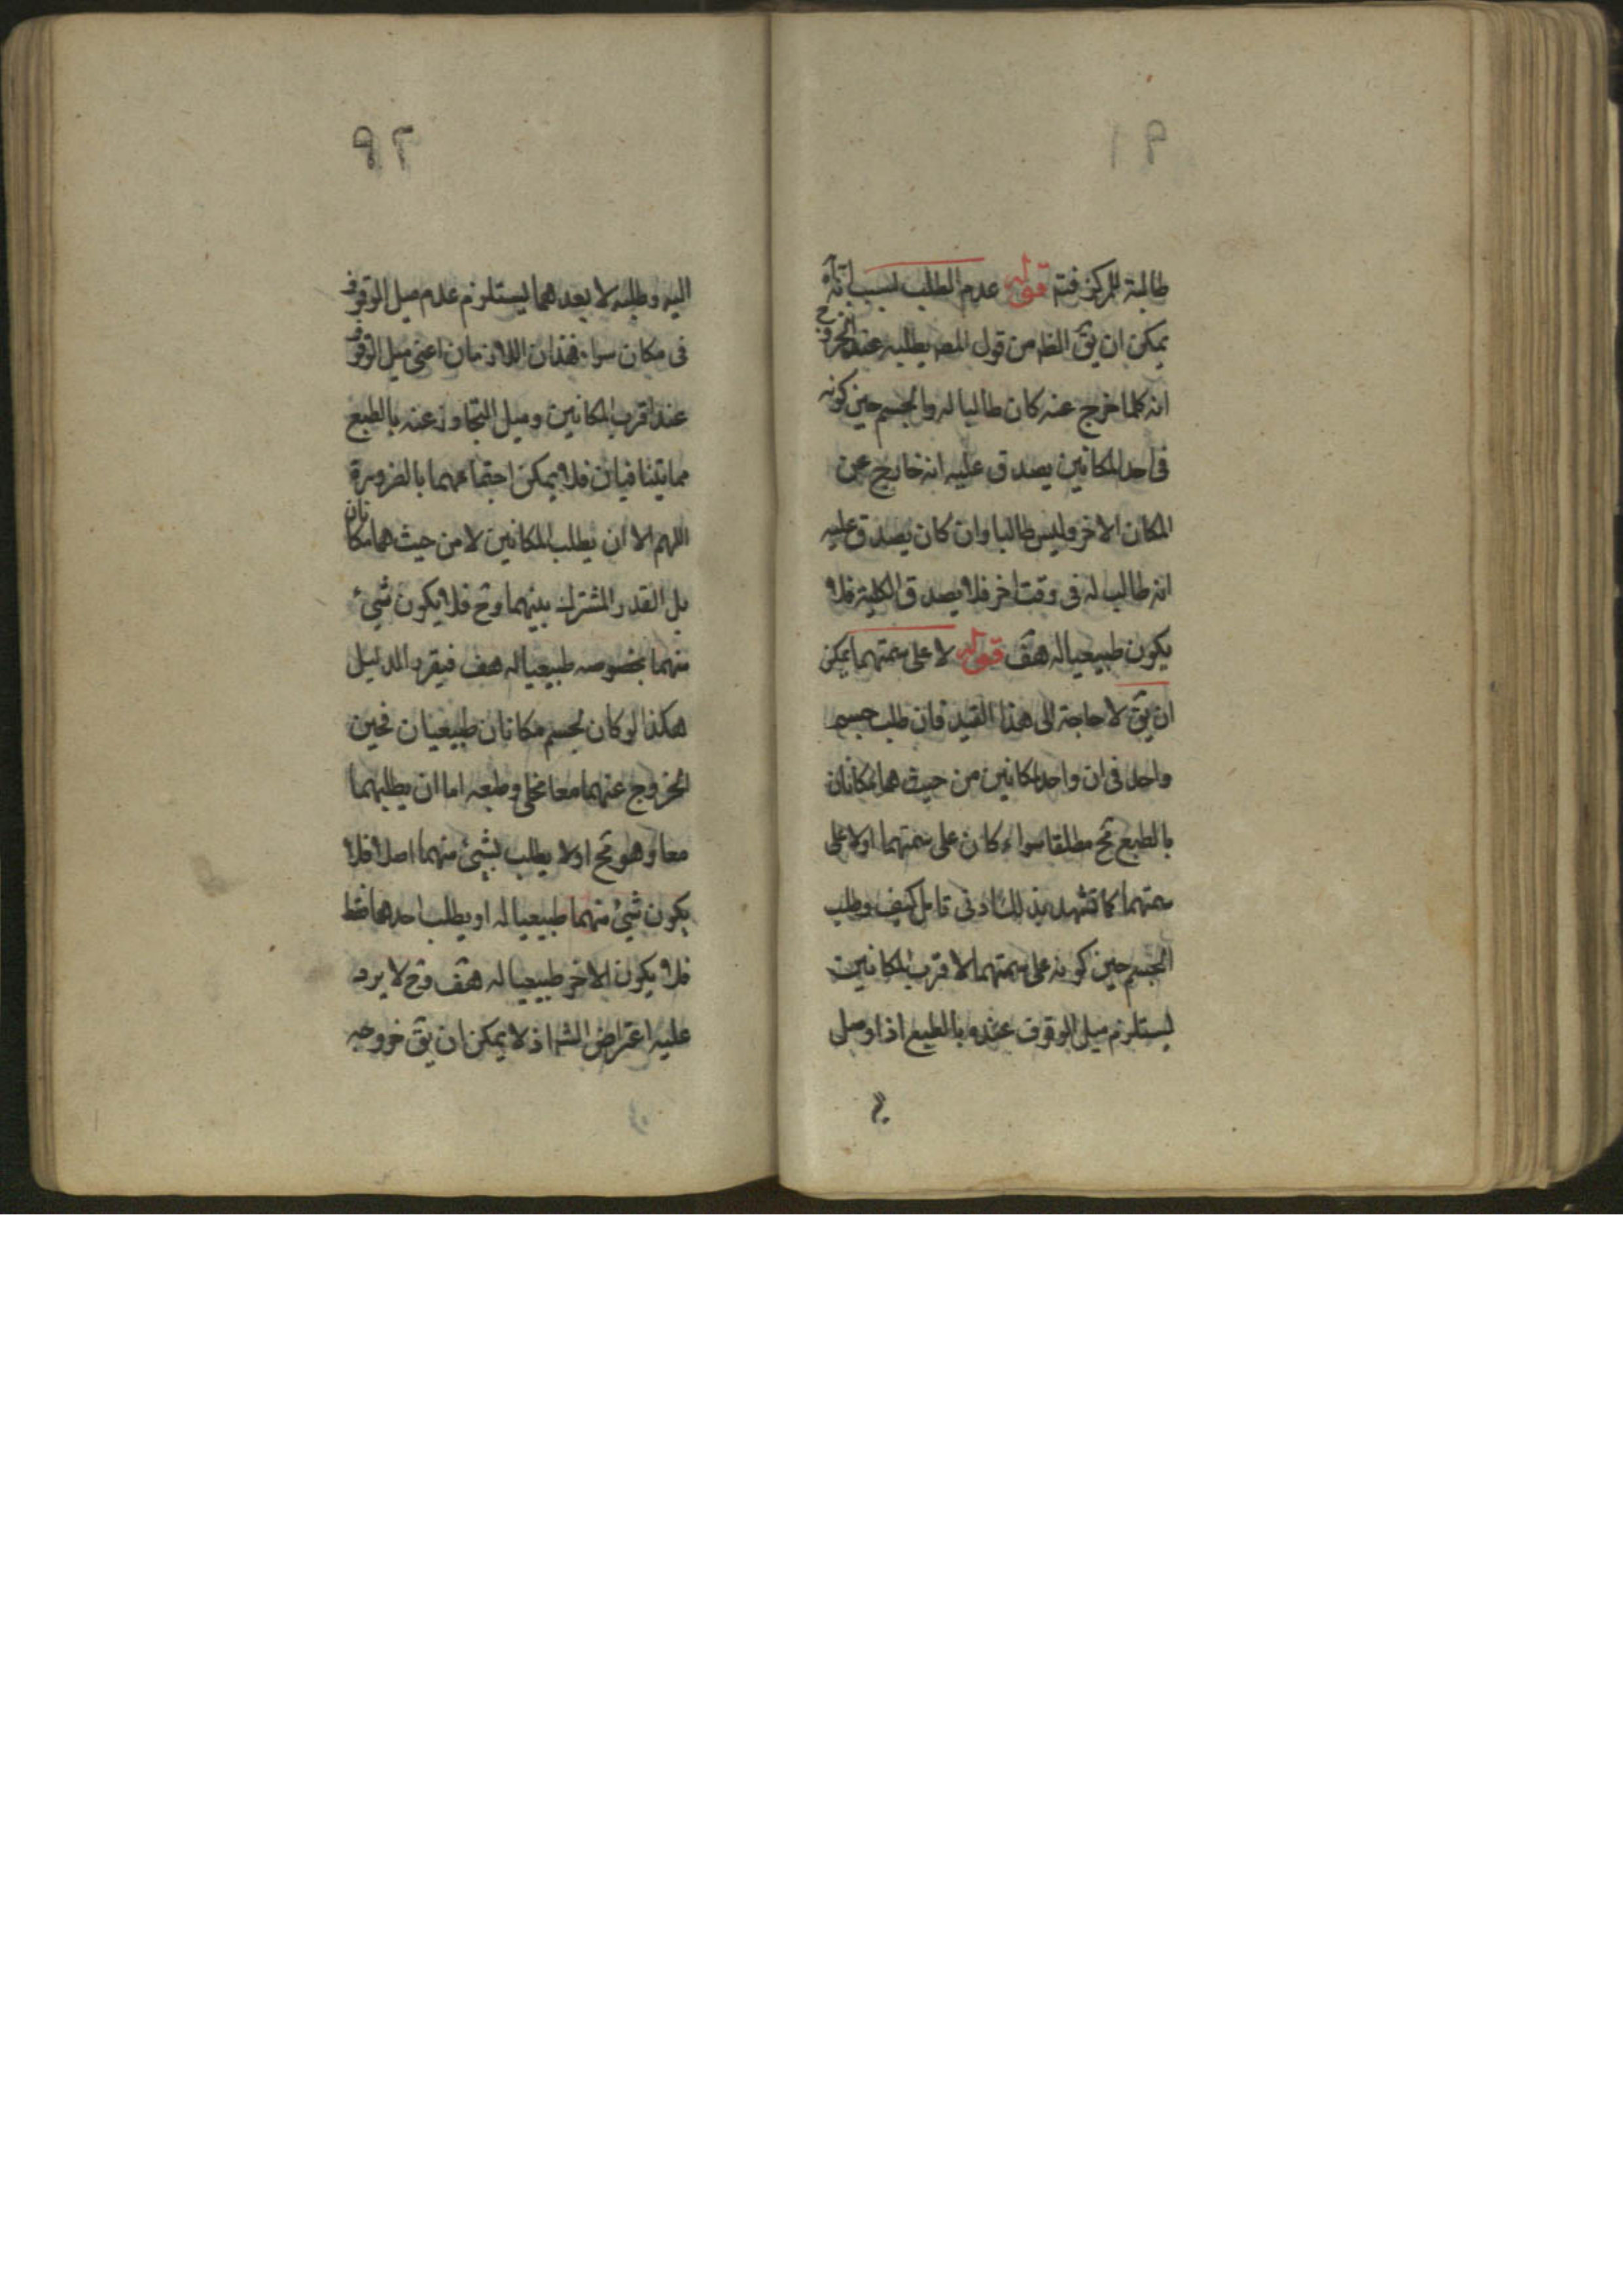 ٩١
طالبة للمركز فتم قوله عدم الطلب بسبب انه
يمكن ان يق الظ من قول المصه يطلبه عند الخروج
انه كلما خرج عنه كان طالبا له والجسم حين كونه
فى احد المكانين يصدق عليه انه خارج عن
المكان الاخر وليس طالبا وان كان يصدق عليه
انه طالب له فى وقت اخر فلا يصدق الكلية فلا
يكون طبيعيا له هف قوله لا على سمتهما يمكن
ان يق لا حاجة الى هذا القيد فان طلب جسم
واحد فى ان واحد لمكانين من حيث هما مكانان
بالطبع مح مطلقا سواء كان على سمتهما او لا على
سمتهما كما تشهد بذلك ادنى تامل كيف وطلب
الجسم حين كونه على سمتهما لاقرب المكانين
يستلزم ميل الوقوف عنده بالطبع اذا وصل
٩٢
اليه وطلبه لابعدهما يستلزم عدم ميل الوقوف
فى مكان سواه فهذان اللازمان اعنى ميل الوقوف
عند اقرب المكانين وميل التجاوز عنه بالطبع
مما يتنافيان فلا يمكن اجتماعهما بالضرورة
اللهم الا ان يطلب المكانين لا من حيث هما مكانان
بل القدر المشترك بينهما وح فلا يكون شيئ
منهما بخصوصه طبيعيا له هف فيقرر الدليل
هكذا لو كان لجسم مكانان طبيعيان فحين
الخروج عنهما معا مخلى وطبعه اما ان يطلبهما
معا وهو مح او لا يطلب لشيئ منهما اصلا فلا
يكون شيئ منهما طبيعيا له او يطلب احدهما فقط
فلا يكون الاخر طبيعيا له هف وح لا يرد
عليه اعتراض الشه اذ لا يمكن ان يق خروجه